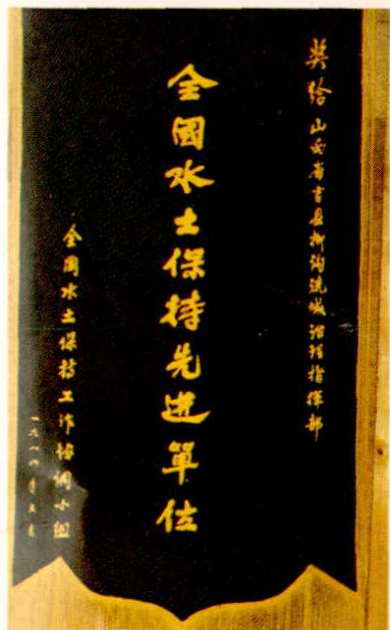 奖给山西省吉县柳沟流域治理指挥部
全国水土保持先进單位
全国水土保持工作协调小组
一九八四年五月